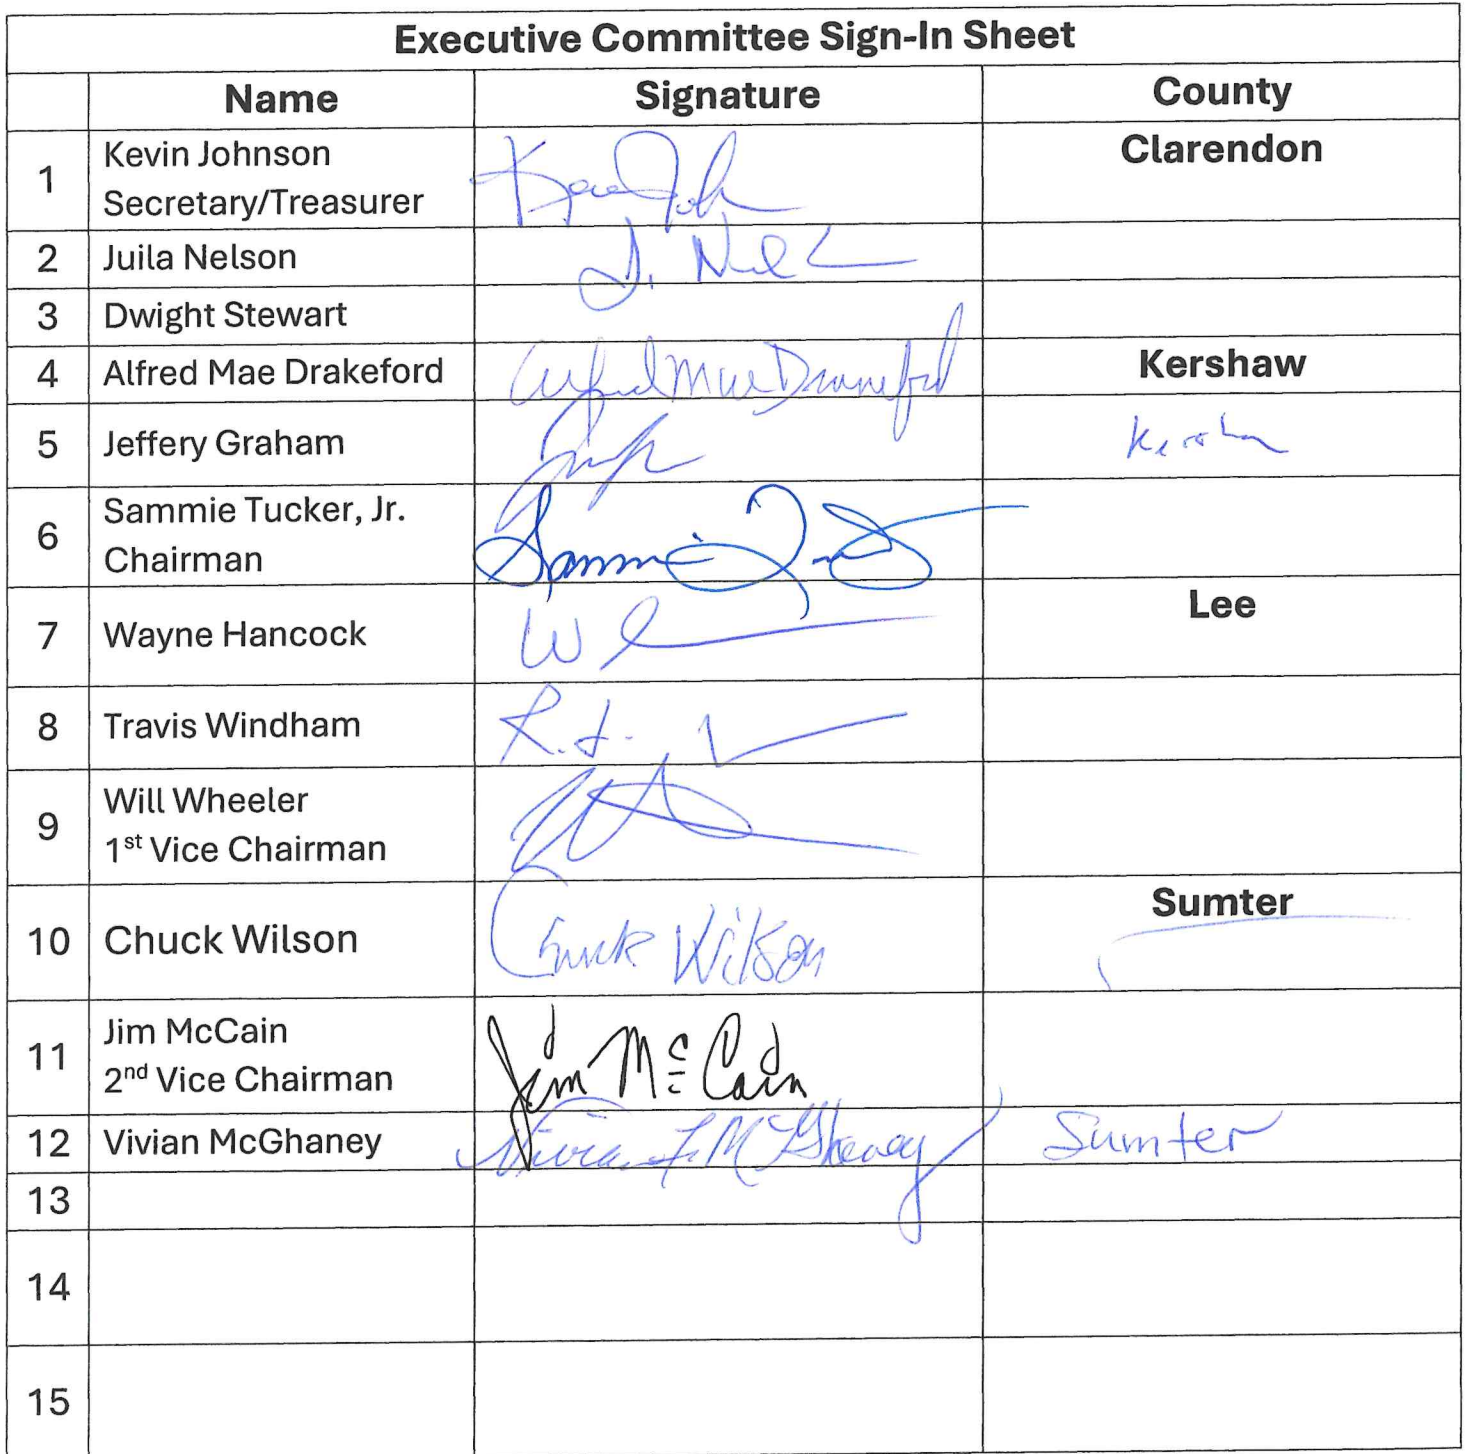 Executive Committee Sign-In Sheet
Name Signature County
1 Kevin Johnson Clarendon
Secretary/Treasurer
2 Juila Nelson
3 Dwight Stewart
4 Alfred Mae Drakeford Alfred Mae Drakeford Kershaw
5 Jeffery Graham Kershaw
6 Sammie Tucker, Jr. Sammie
Chairman
7 Wayne Hancock W Lee
8 Travis Windham
9 Will Wheeler
1st Vice Chairman
10 Chuck Wilson Chuck Wilson Sumter
11 Jim McCain Jim McCain
2nd Vice Chairman
12 Vivian McGhaney Vivian F. McGhaney Sumter
13
14
15